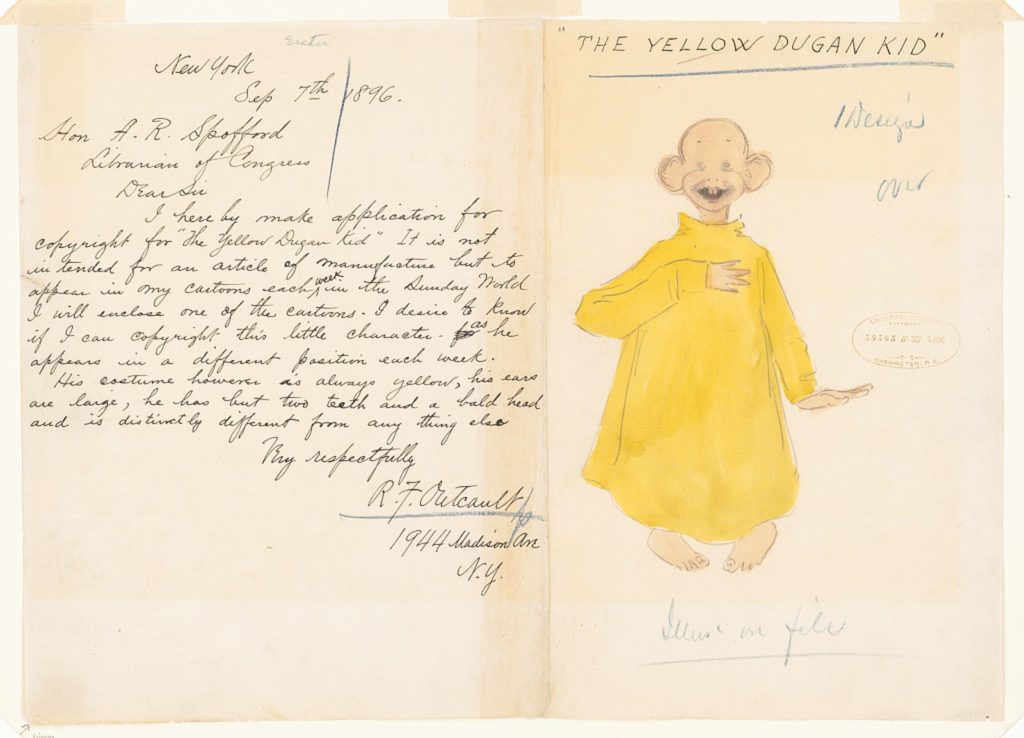 New York
Sep 7th 1896.
Hon A. R. Spofford
Librarian of Congress
Dear Sir
I here by make application for
copyright for "The Yellow Dugan Kid" It is not
intended for an article of manufacture but to
appear in my cartoons each week in the Sunday World
I will enclose one of the cartoons. I desire to know
if I can copyright this little character. as he
appears in a different position each week.
His costume however is always yellow, his ears
are large, he has but two teeth and a bald head
and is distinctly different from any thing else
Very respectfully
R. F. Outcault
1944 Madison Ave
N.Y.
"THE YELLOW DUGAN KID"
1 Design
over
WASHINGTON, D.C.
Illus. on file